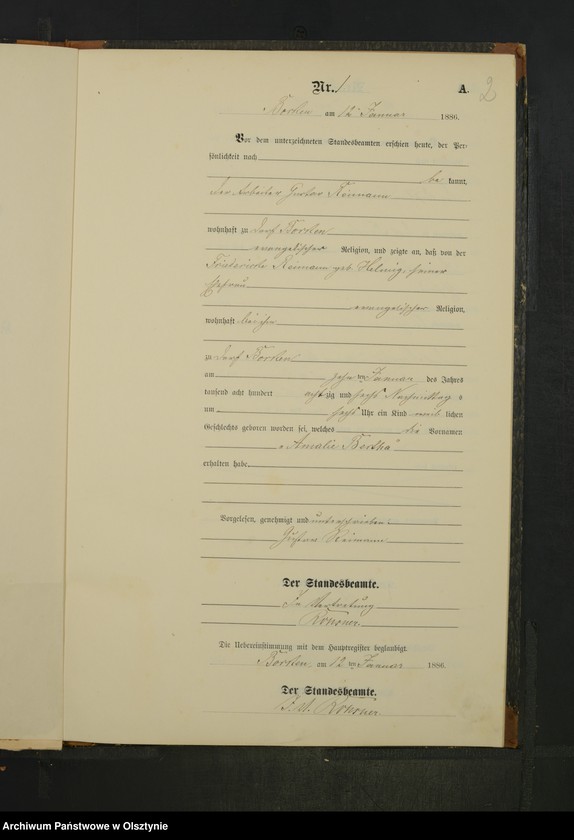 Nr. 1
A.
2
Borken am 12 Januar 1886.
Vor dem unterzeichneten Standesbeamten erschien heute, der Per-
sönlichkeit nach
be kannt,
der Arbeiter Gustav Reimann
wohnhaft zu Dorf Borken
evangelischer Religion, und zeigte an, daß von der
Reimann geb. seiner
Ehefrau
evangelischer Religion,
wohnhaft bei ihm
zu Dorf Borken
am zehn ten Januar des Jahres
tausend acht hundert acht zig und sechs Nachmittag s
um sechs Uhr ein Kind weib lichen
Geschlechts geboren worden sei, welches die Vornamen
"Amalie Bertha"
erhalten habe.
Vorgelesen, genehmigt und unterschrieben
Gustav Reimann
Der Standesbeamte.
In Vertretung
Die Uebereinstimmung mit dem Hauptregister beglaubigt.
Borken am 12 ten Januar 1886.
Der Standesbeamte.
I. V.
Archiwum Państwowe w Olsztynie